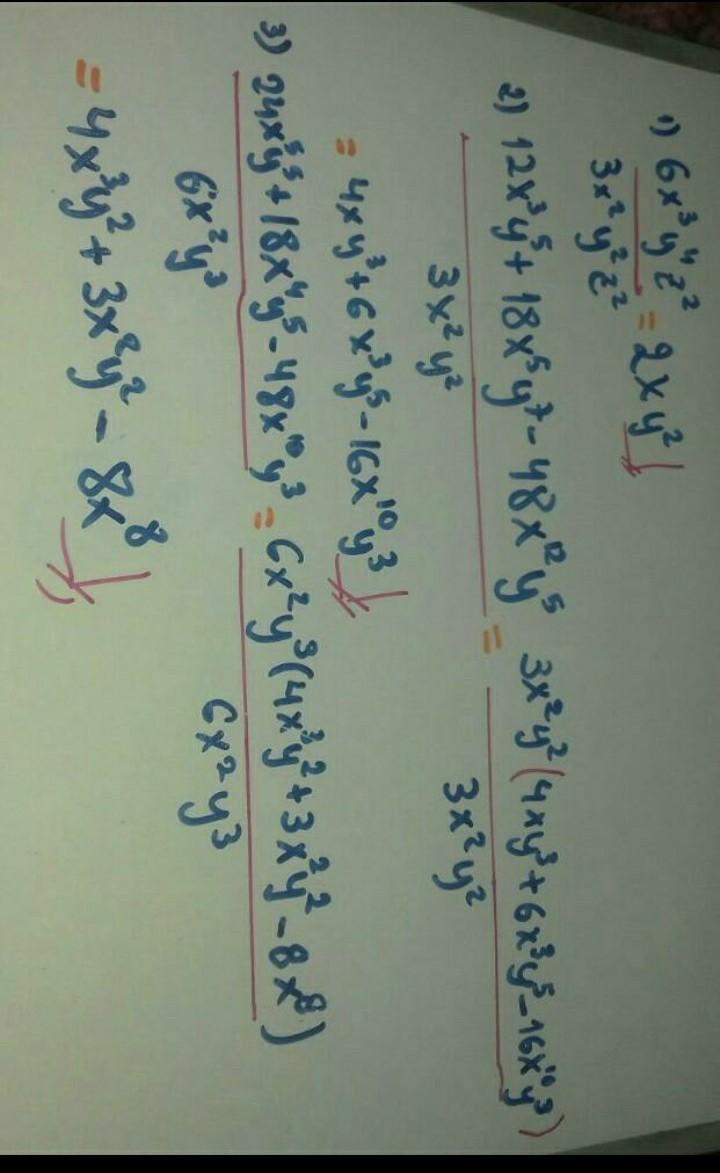 1) 6x³y⁴z² / 3x²y²z² = 2xy²
2) 12x³y⁵ + 18x⁵y⁷ - 48x¹²y⁵ / 3x²y² = 3x²y²(4xy³ + 6x³y⁵ - 16x¹⁰y³) / 3x²y²
= 4xy³ + 6x³y⁵ - 16x¹⁰y³
3) 24x⁵y⁵ + 18x⁴y⁵ - 48x¹⁰y³ / 6x²y³ = 6x²y³(4x³y² + 3x²y² - 8x⁸) / 6x²y³
= 4x³y² + 3x²y² - 8x⁸